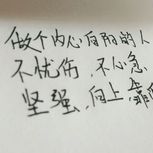 做个内心向阳的人
不忧伤,不心急
坚强,向上,靠